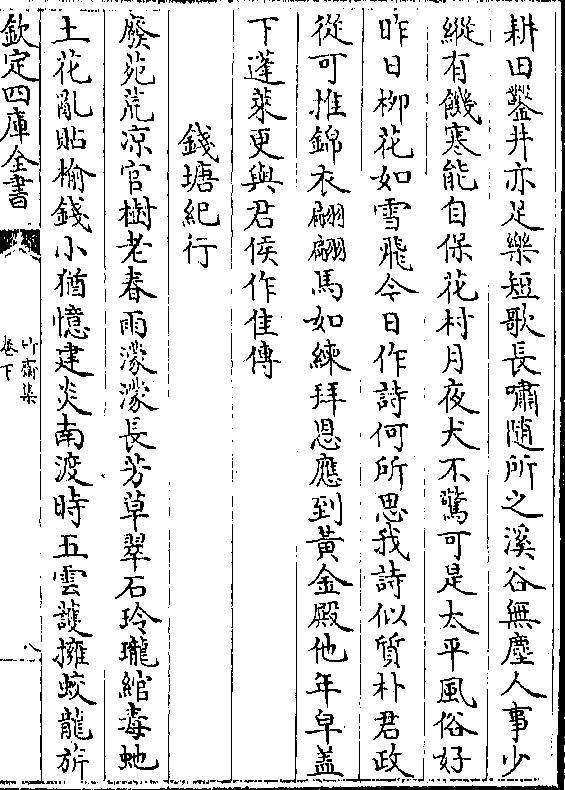 耕田鑿井亦足樂短歌長嘯随所之溪谷無塵人事少
縱有饑寒能自保花村月夜犬不驚可是太平風俗好
昨日柳花如雪飛今日作詩何所思我詩似質朴君政
從可推錦衣翩翩馬如練拜恩應到黃金殿他年皁盖
下蓬萊更與君侯作佳傳
錢塘紀行
廢苑荒凉官樹老春雨濛濛長芳草翠石玲瓏綰毒虵
土花亂貼榆錢小猶憶建炎南渡時五雲護擁蛟龍旂
欽定四庫全書
竹齋集
卷下
八